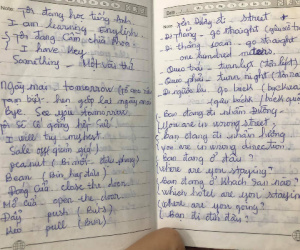 Tôi đang học tiếng Anh
I am learning English
Tôi đang cầm chìa khóa
I have key
Something Một vài thứ
Ngày mai = tomorrow
hẹn gặp lại ngày mai
Bye. See you tomorrow
Tôi sẽ cố gắng hết sức
I will try my best
Sale off giảm giá
peanut (Pi nớt - đậu phộng)
Bean (Bin, hạt đậu)
Đóng cửa close the door
Mở cửa open the door
Đẩy push
Kéo pull
street
Đi thẳng go straight
Đi thẳng 100m go straight
one hundred meters
Quẹo trái turn left
Quẹo phải turn right
Đi ngược lại go back
Bạn đang đi nhầm đường
You are in wrong street
Bạn đang đi nhầm hướng
You are in wrong direction
Bạn đang ở đâu?
Where are you staying?
Bạn đang ở khách sạn nào?
Which hotel are you staying
Where are you going?
Bạn đi đâu đấy?